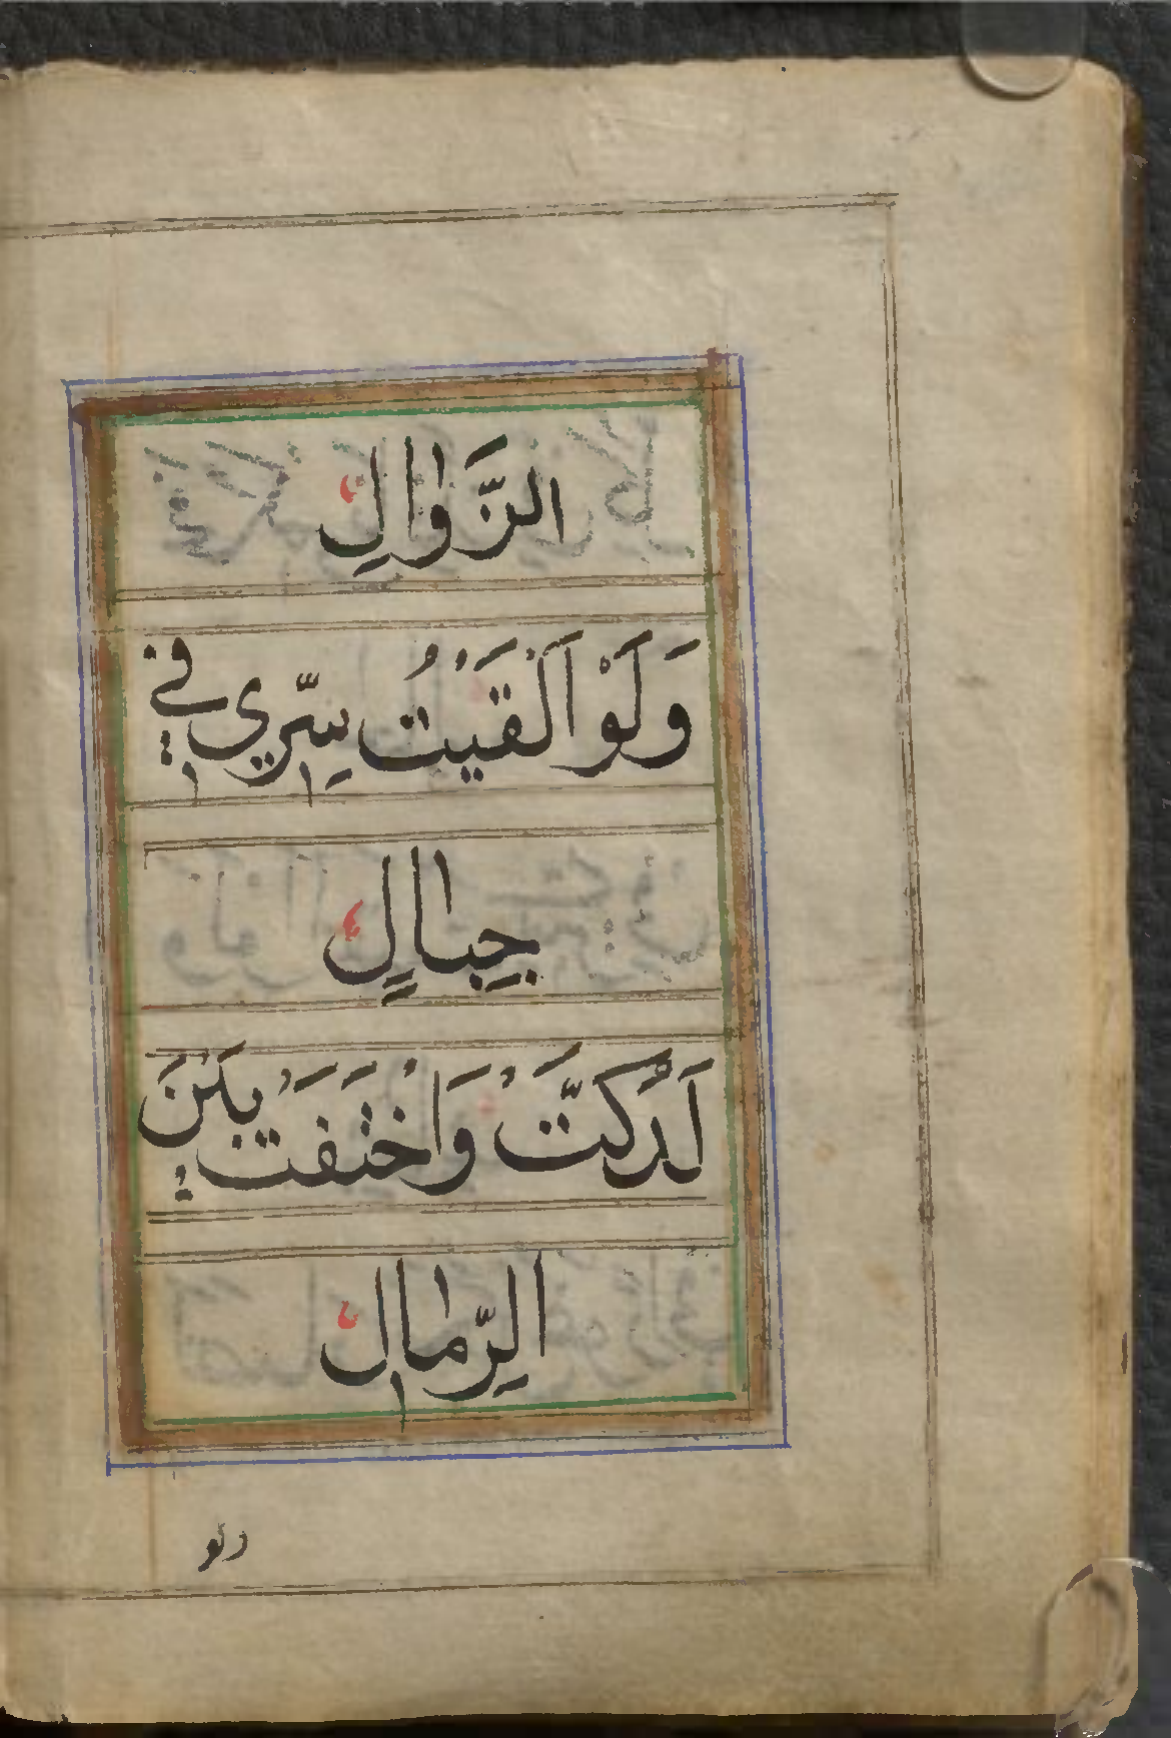 الزَّوَالِ
وَلَوْ اَلْقَيْتُ سِرِّي فِي
جِبَالٍ
لَدُكَّتْ وَاخْتَفَتْ بَيْنَ
الرِّمَالِ
ولو